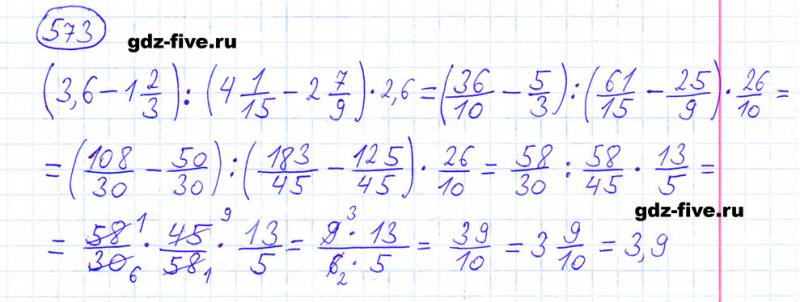 573
gdz-five.ru
(3,6 − 1 2/3) : (4 1/15 − 2 7/9) · 2,6 = (36/10 − 5/3) : (61/15 − 25/9) · 26/10 =
= (108/30 − 50/30) : (183/45 − 125/45) · 26/10 = 58/30 : 58/45 · 13/5 =
gdz-five.ru
= 58 1/30 6 · 45 9/58 1 · 13/5 = 9 3 · 13/6 2 · 5 = 39/10 = 3 9/10 = 3,9